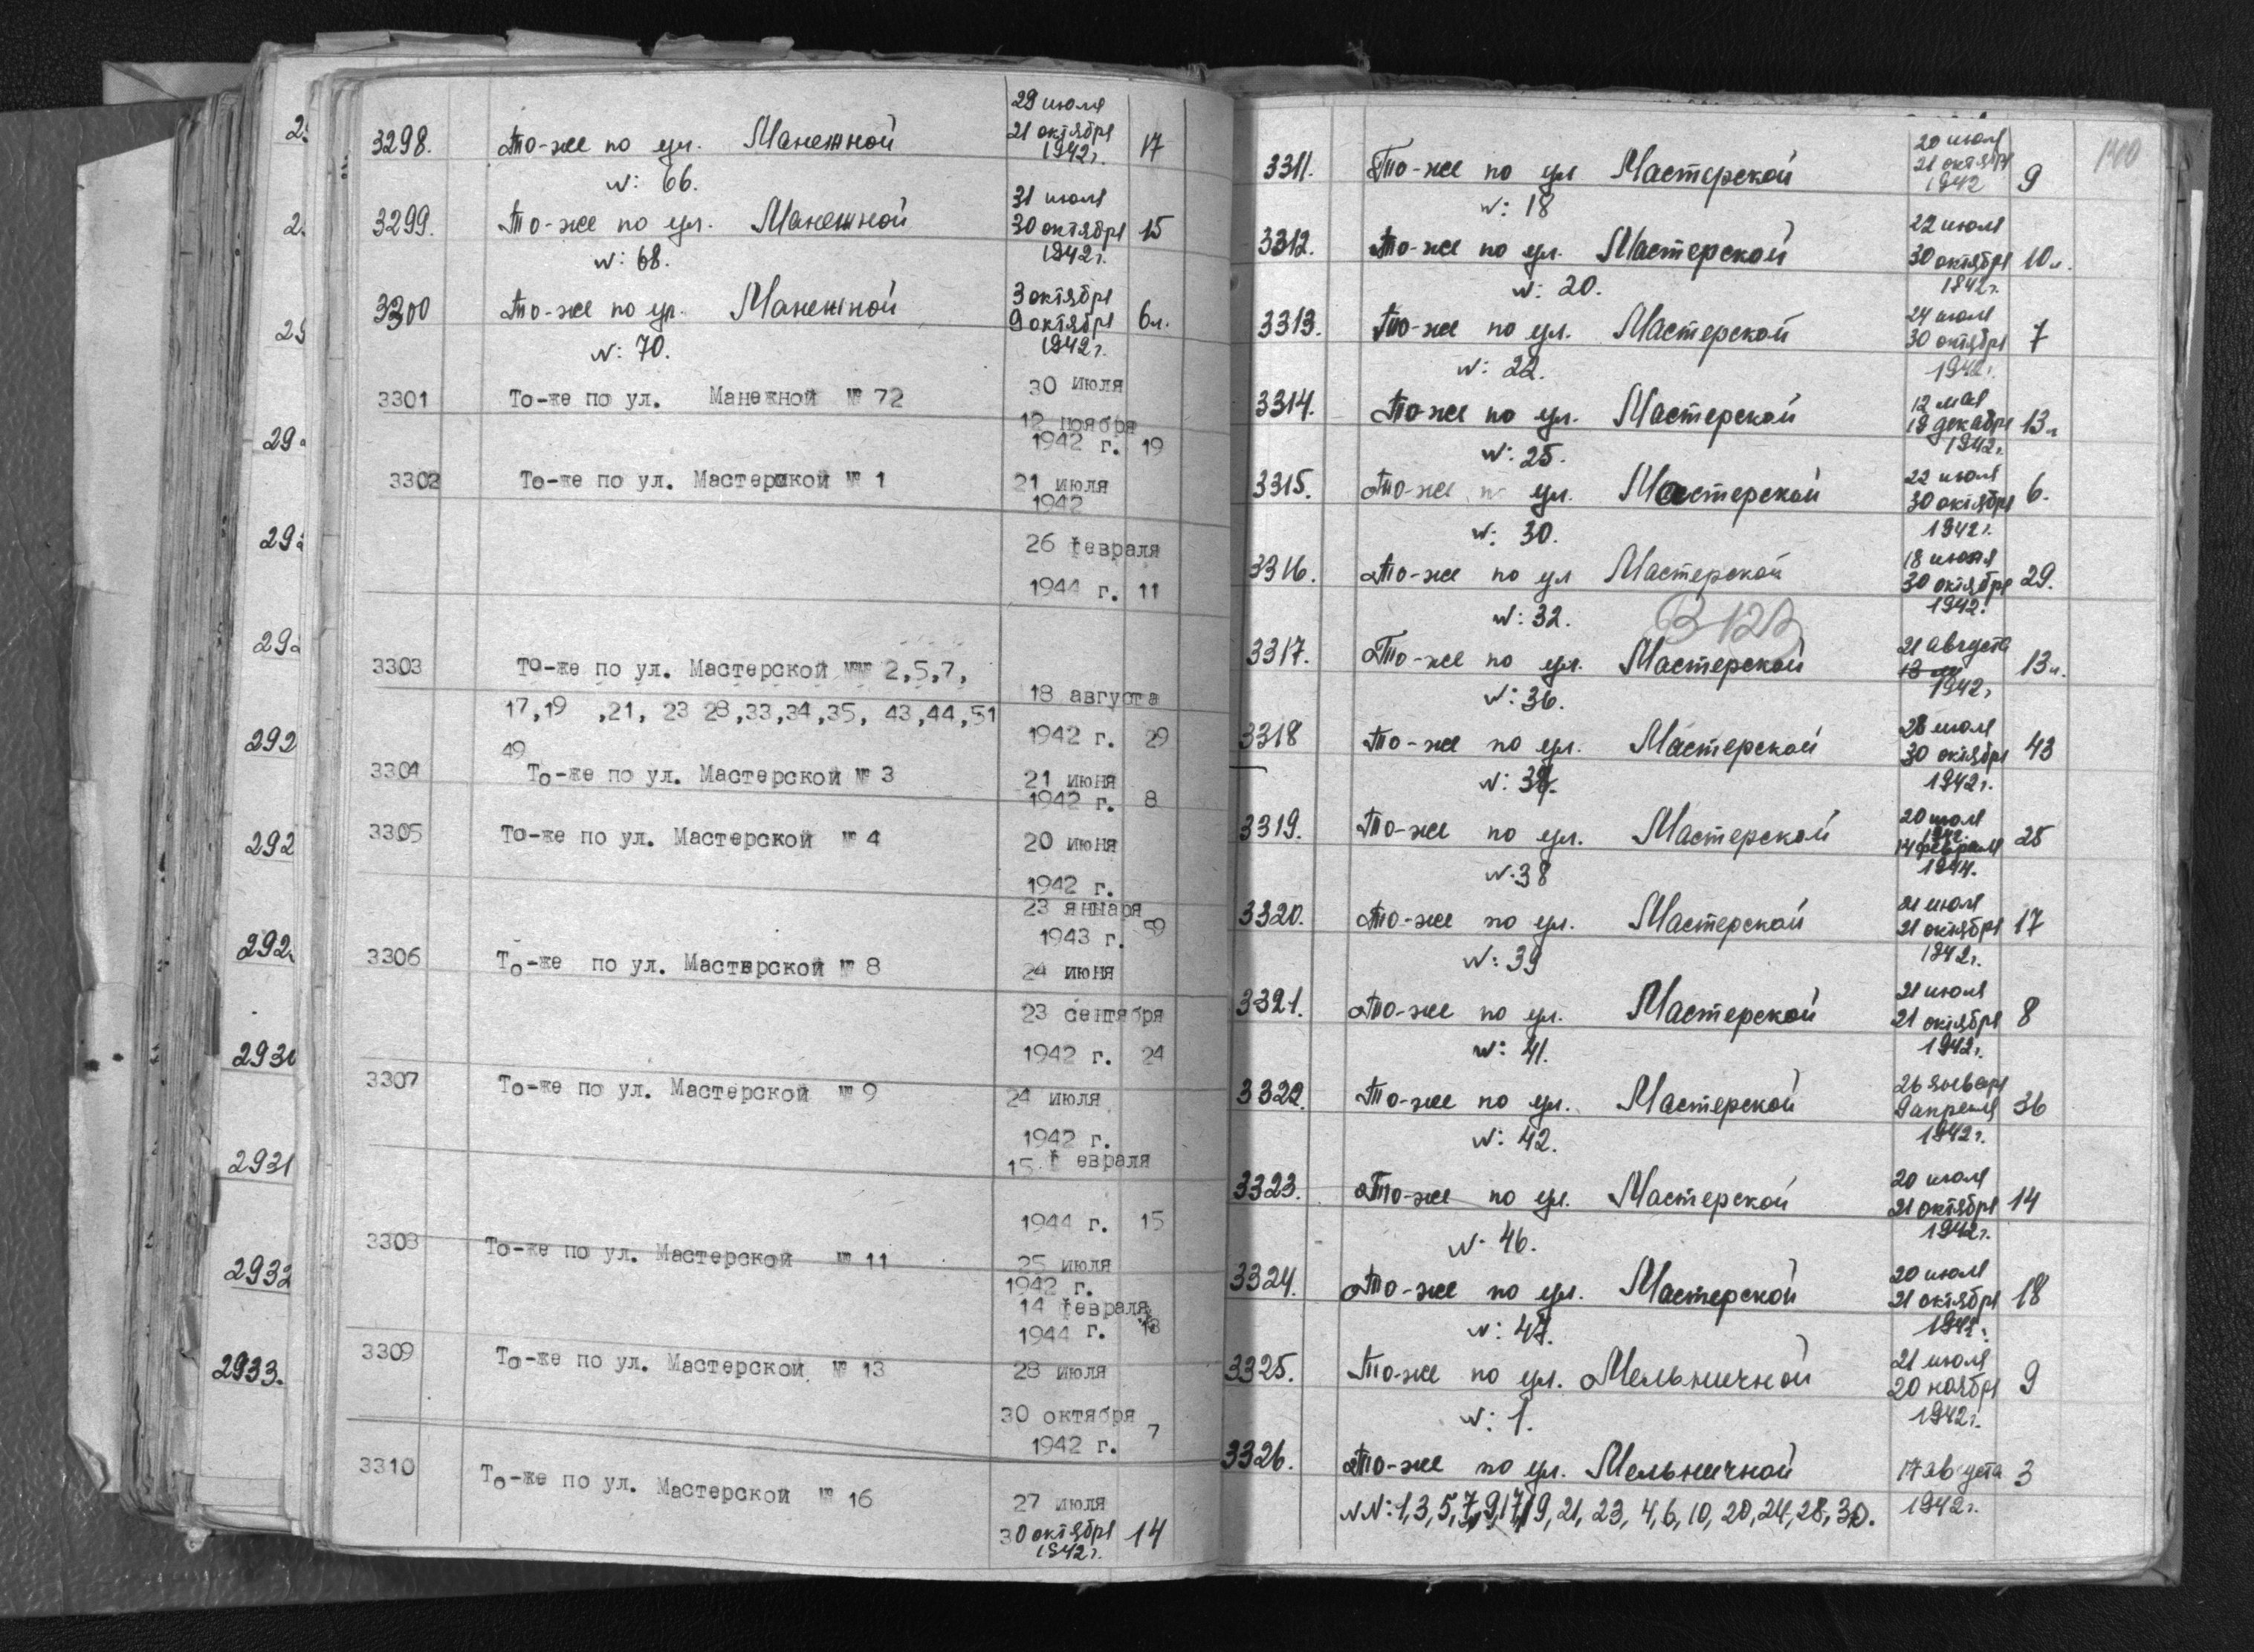 3298. То-же по ул. Манежной 29 июля
21 октября 17
1942г.
№: 66.
3299. То-же по ул. Манежной 31 июля
30 октября 15
1942г.
№: 68.
3300 То-же по ул. Манежной 3 октября
9 октября 6л.
1942г.
№: 70.
3301 То-же по ул. Манежной № 72 30 июля
12 ноября
1942 г. 19
3302 То-же по ул. Мастерской № 1 21 июля
1942
26 февраля
1944 г. 11
3303 То-же по ул. Мастерской №№ 2,5,7,
17,19 ,21, 23 28,33,34,35, 43,44,51 18 августа
49 1942 г. 29
3304 То-же по ул. Мастерской № 3 21 июня
1942 г. 8
3305 То-же по ул. Мастерской № 4 20 июня
1942 г.
23 января
1943 г. 59
3306 То-же по ул. Мастерской № 8 24 июня
23 сентября
1942 г. 24
3307 То-же по ул. Мастерской № 9 24 июля
1942 г.
15 февраля
1944 г. 15
3308 То-же по ул. Мастерской № 11 25 июля
1942 г.
14 февраля
1944 г. 18
3309 То-же по ул. Мастерской № 13 28 июля
30 октября
1942 г. 7
3310 То-же по ул. Мастерской № 16 27 июля
30 октября 14
1942г.
292
292
2931
2932
2933.
140
3311. То-же по ул Мастерской 20 июля
21 октября
1942 9
№: 18
3312. То-же по ул. Мастерской 22 июля
30 октября 10л.
1942г.
№: 20.
3313. То-же по ул. Мастерской 24 июля
30 октября 7
1942г.
№: 22.
3314. То-же по ул. Мастерской 12 мая
19 декабря 13л
1942г.
№: 25.
3315. То-же по ул. Мастерской 22 июля
30 октября 6.
1942г.
№: 30.
3316. То-же по ул Мастерской 18 июля
30 октября 29.
1942г.
№: 32.
3317. То-же по ул. Мастерской 21 августа
13л.
1942г
№: 36.
3318 То-же по ул. Мастерской 28 июля
30 октября 43
1942г.
№: 37.
3319. То-же по ул. Мастерской 20 июля
1942г.
14 февраля 25
1944.
№: 38
3320. То-же по ул. Мастерской 21 июля
21 октября 17
1942г.
№: 39
3321. То-же по ул. Мастерской 21 июля
21 октября 8
1942г.
№: 41.
3322. То-же по ул. Мастерской 26 января
9 апреля 36
1942г.
№: 42.
3323. То-же по ул. Мастерской 20 июля
21 октября 14
1942г.
№ 46.
3324. То-же по ул. Мастерской 20 июля
21 октября 18
1942г.
№: 47.
3325. То-же по ул. Мельничной 21 июля
20 ноября 9
1942г.
№: 1.
3326. То-же по ул. Мельничной 17 августа 3
NN: 1, 3, 5, 7, 9, 17, 19, 21, 23, 4, 6, 10, 20, 24, 28, 30. 1942г.